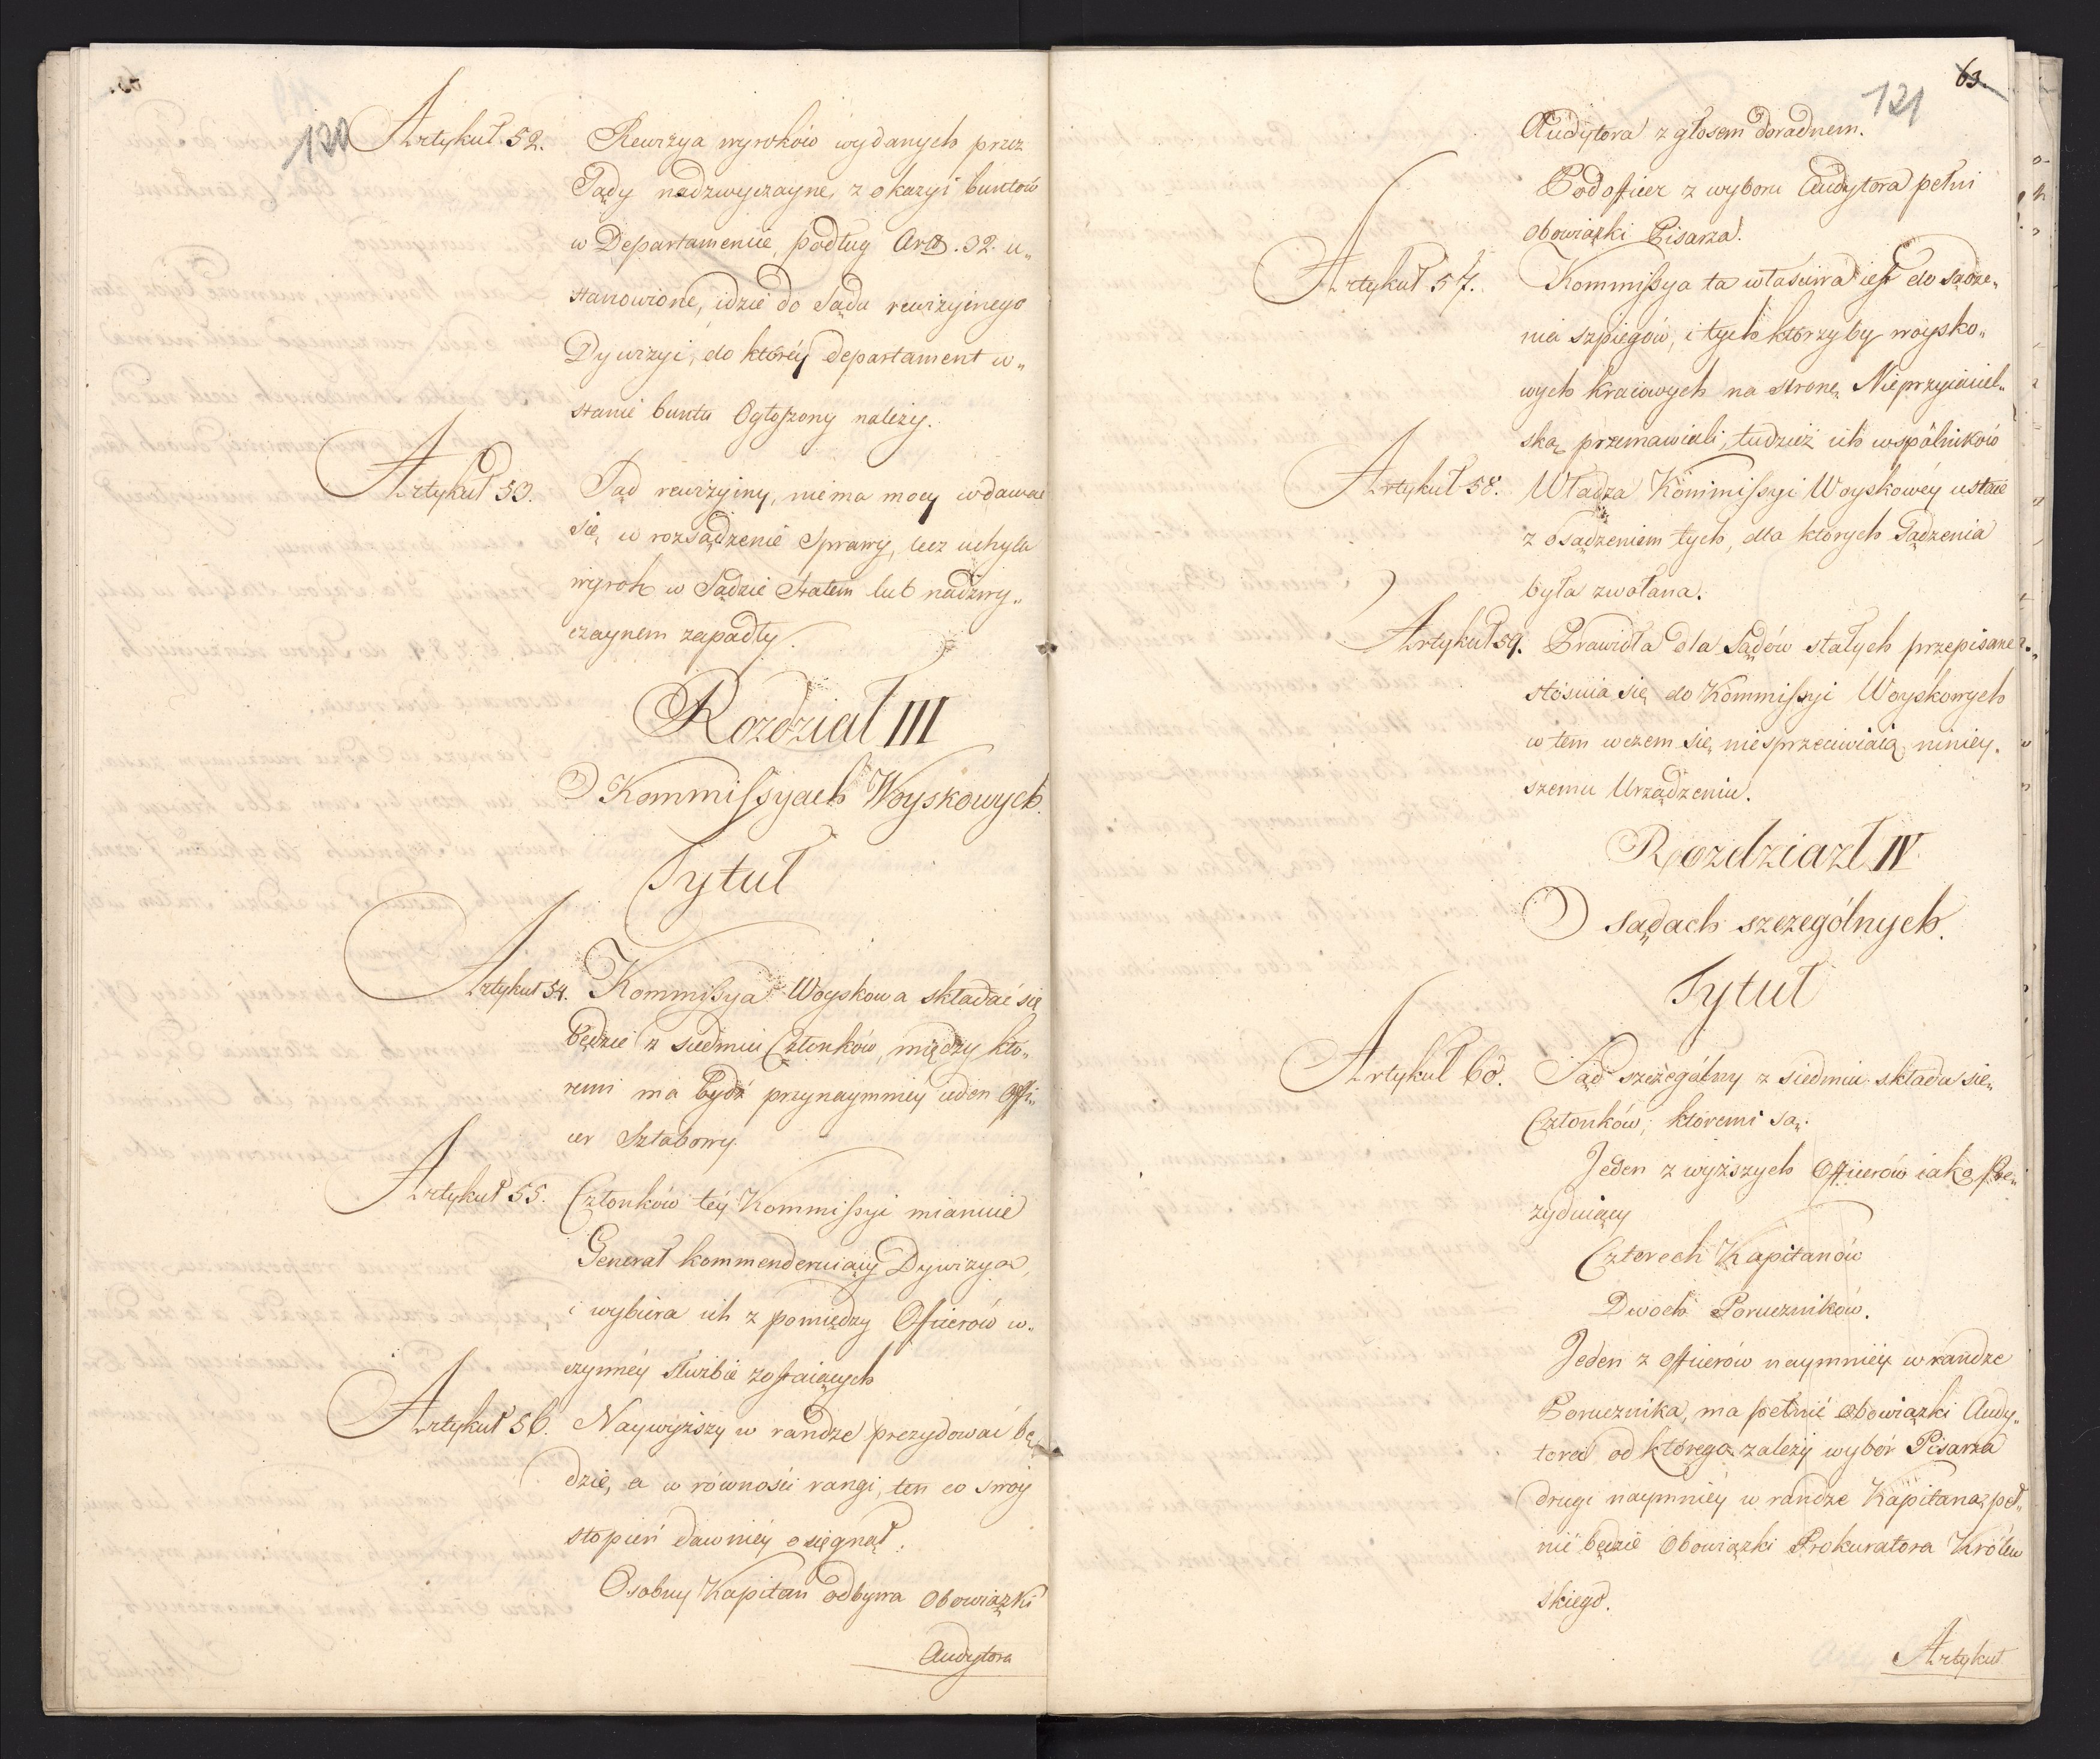 120
Artykuł 52. Rewizya wyroków wydanych przez
Sądy nadzwyczayne, z okazyi buntów
w Departamencie, podług Art. 32. u„
stanowione, idzie do Sądu rewizyinego
Dywizyi, do któréy departament w„
stanie buntu Ogłoszony należy.
Artykuł 53. Sąd rewizyiny, niema mocy wdawać
się, w rozsądzenie Sprawy, lecz uchyla
wyrok w Sądzie stałem lub nadzwy„
czaynem zapadły.
Rozdział III
O Kommissyach Woyskowych.
Tytuł
Artykuł 54. Kommissya Woyskowa składać się
będzie z siedmiu Członków, między któ„
remi ma bydź przynaymniéy ieden Offi„
cer Sztabowy.
Artykuł 55. Członków téy Kommissyi mianuie
Generał kommenderuiący Dywizyą,
i wybiera ich z pomiędzy Officerów w„
czynnéy służbie zostaiących
Artykuł 56. Naywyższy w randze prezydować bę„
dzie, a w równości rangi, ten co swóy
stopień dawniéy osięgnął.
Osobny Kapitan odbywa Obowiązki
Audytora
63.
121
Audytora z głosem doradnem.
Podoficer z wyboru Audytora pełni
obowiązki Pisarza.
Artykuł 57. Kommissya ta właściwa iest do sądze„
nia szpiegów, i tych którzyby woysko„
wych kraiowych na stronę Nieprzyiaciel„
ską przemawiali, tudzież ich wspólników
Artykuł 58. Władza Kommissyi Woyskowéy ustaie
z osądzeniem tych, dla których Sądzenia
była zwołana.
Artykuł 59. Prawidła dla Sądów stałych przepisane
stósuią się do Kommissyi Woyskowych
w tem w czem się niesprzeciwiaią niniey„
szemu Urządzeniu.
Rozdziazł IV
O sądach szczególnych.
Tytuł
Artykuł 60. Sąd szczególny z siedmiu składa się
Członków, któremi są:
Jeden z wyższych Officerów iako Pre„
zyduiący
Czterech Kapitanów
Dwoch Poruczników.
Jeden z officerów naymniéy w randze
Porucznika, ma pełnić obowiązki Audy„
tora od którego zależy wybór Pisarza
drugi naymniéy w randze Kapitana, peł„
nić będzie Obowiązki Prokuratora Królew
skiego.
Artykuł